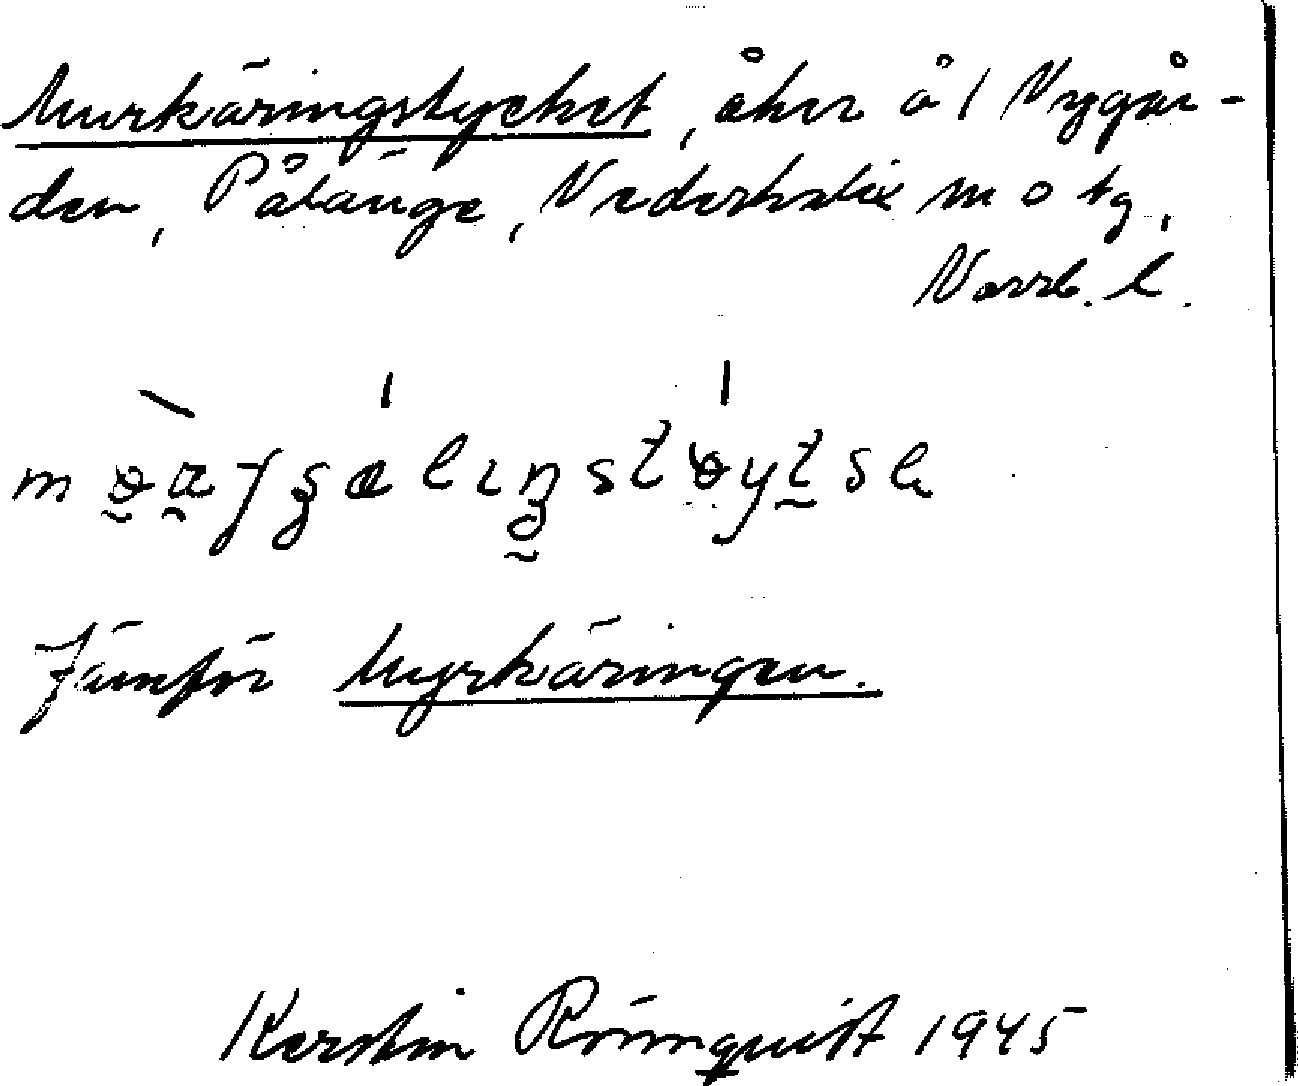 Murkäringstycket, åker å 1 Nygår-
den, Pålänge, Nederkalix m o tg,
Norrb. l.
Jämför Myrkäringen.
Kerstin Rönnquist 1945